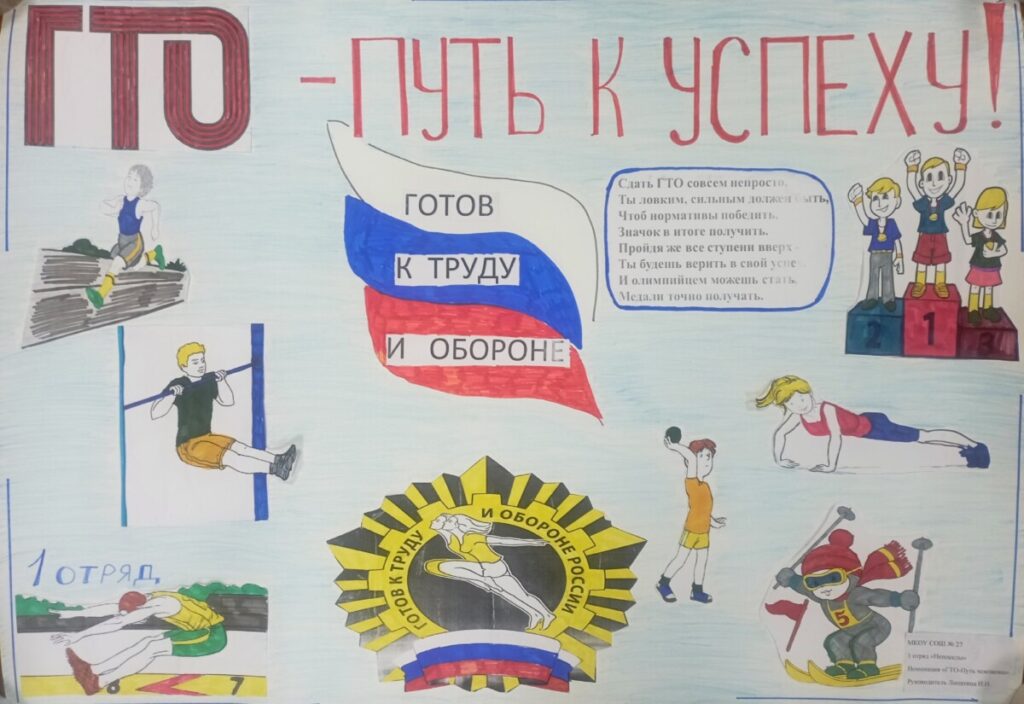 ГТО
- ПУТЬ К УСПЕХУ!
ГОТОВ
К ТРУДУ
И ОБОРОНЕ
Сдать ГТО совсем непросто,
Ты ловким, сильным должен быть,
Чтоб нормативы победить.
Значок в итоге получить.
Пройдя же все ступени вверх -
Ты будешь верить в свой успех.
И олимпийцем можешь стать.
Медали точно получать.
2 1 3
ГОТОВ К ТРУДУ И ОБОРОНЕ РОССИИ
1 ОТРЯД
8 7
5
МКОУ СОШ № 27
1 отряд
Номинация «ГТО-Путь
Руководитель И.Н.